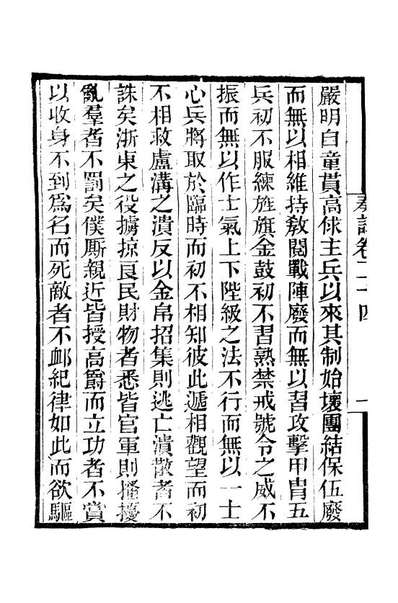 奏議卷二十四 一
嚴明自童貫高俅主兵以來其制始壞團結保伍廢
而無以相維持敎閱戰陣廢而無以習攻擊甲冑五
兵初不服練旌旗金鼓初不習熟禁戒號令之威不
振而無以作士氣上下陛級之法不行而無以一士
心兵將取於臨時而初不相知彼此遞相觀望而初
不相救盧溝之潰反以金帛招集則逃亡潰散者不
誅矣浙東之役擄掠良民財物者悉皆官軍則搔擾
亂羣者不罰矣僕厮親近皆授高爵而立功者不賞
以收身不到爲名而死敵者不卹紀律如此而欲驅